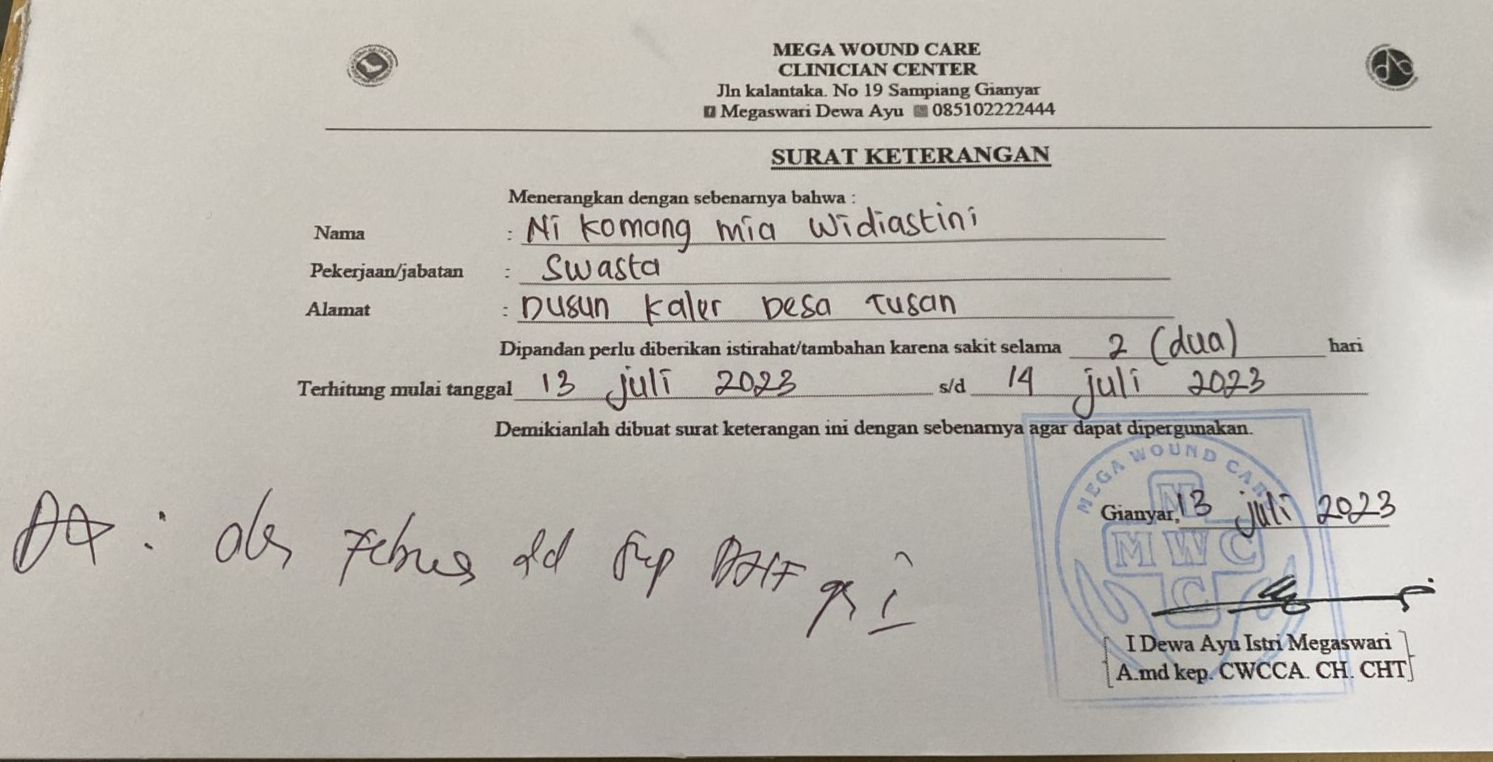 MEGA WOUND CARE
CLINICIAN CENTER
Jln kalantaka. No 19 Sampiang Gianyar
Megaswari Dewa Ayu 085102222444
SURAT KETERANGAN
Menerangkan dengan sebenarnya bahwa :
Nama : Ni Komang mia Widiastini
Pekerjaan/jabatan : Swasta
Alamat : Dusun Kaler Desa Tusan
Dipandan perlu diberikan istirahat/tambahan karena sakit selama 2 (dua) hari
Terhitung mulai tanggal 13 juli 2023 s/d 14 juli 2023
Demikianlah dibuat surat keterangan ini dengan sebenarnya agar dapat dipergunakan.
MEGA WOUND CARE
Gianyar, 13 juli 2023
MWC
: obs Febris DHF
I Dewa Ayu Istri Megaswari
A.md kep. CWCCA. CH. CHT